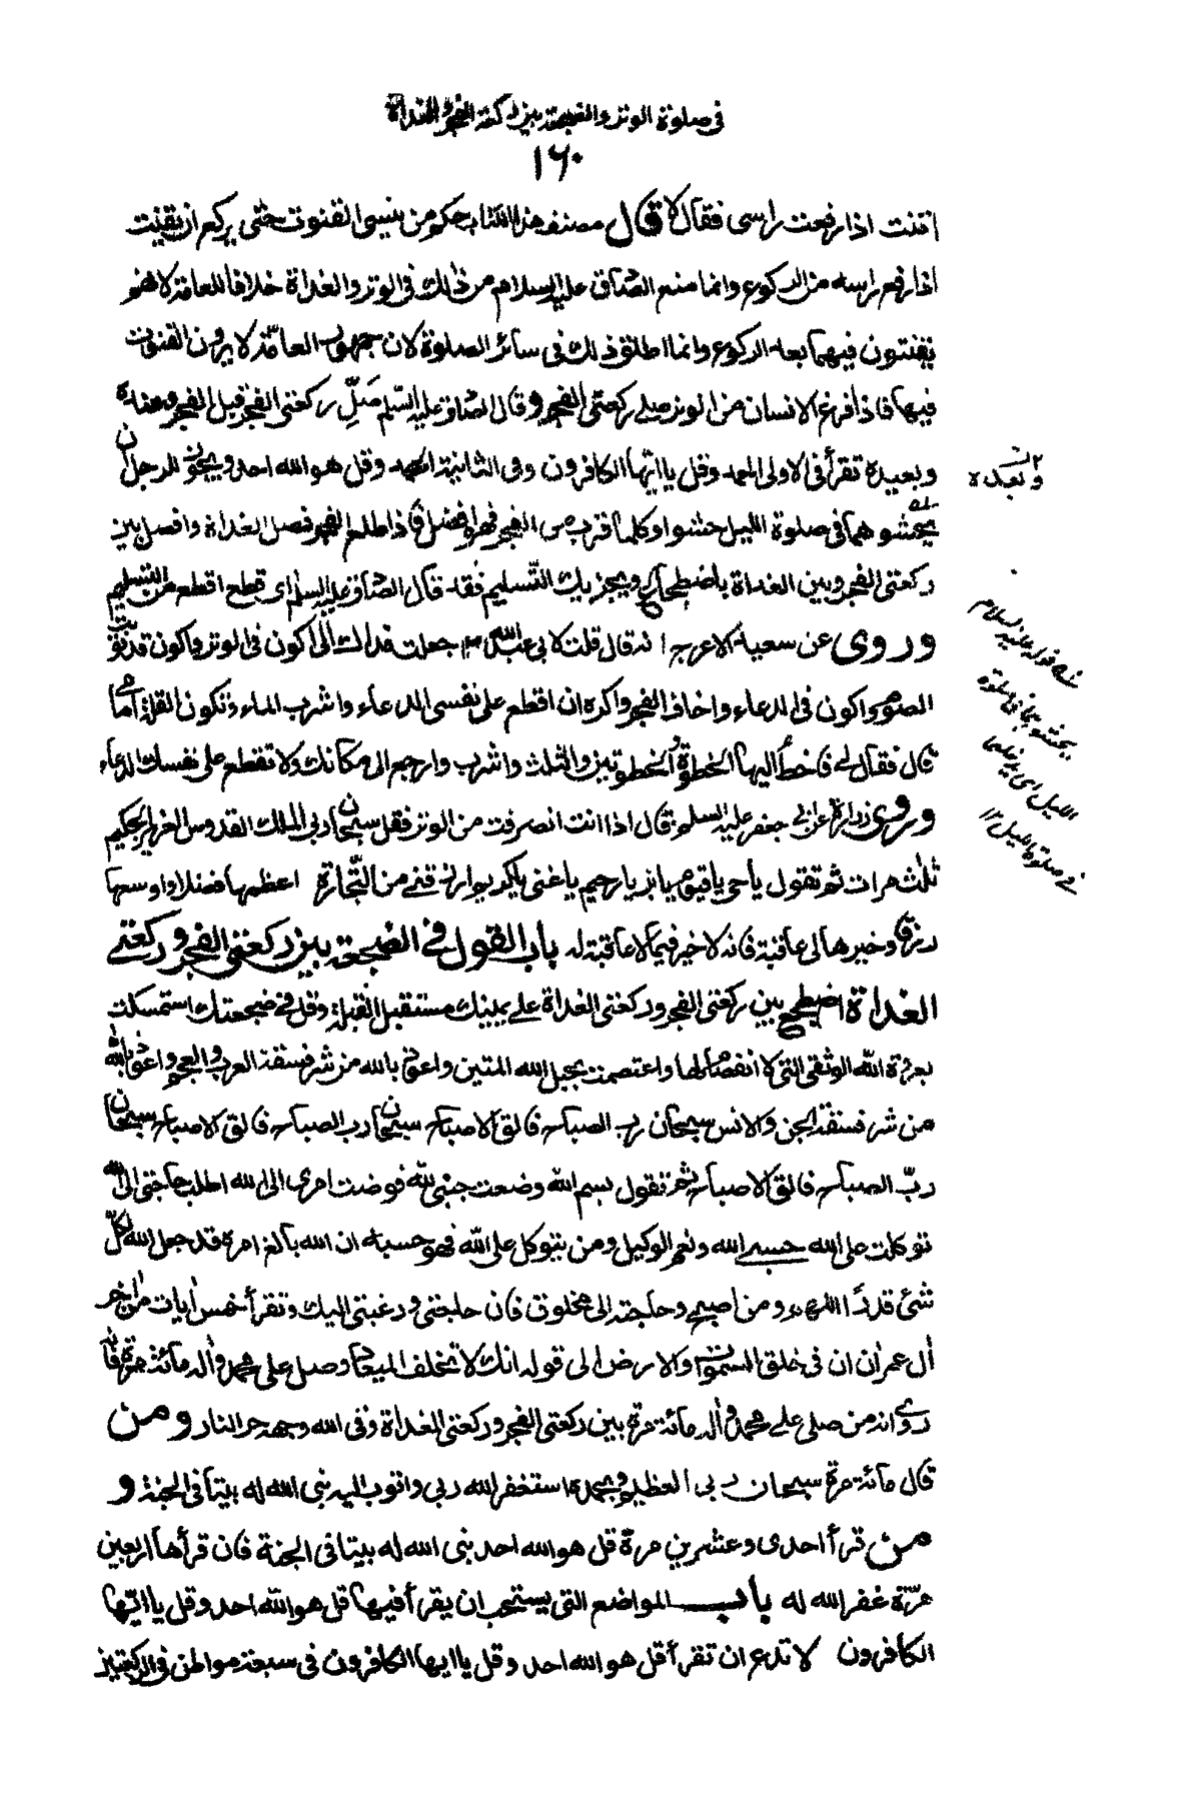 في صلوة الوتر والضجعة بين ركعتي الفجر والغداة
١٦٠
اقنت اذا رفعت راسي فقال لا قال مصنف هذا الكتاب حكم من ينسى القنوت حتى يركع ان يقنت
اذا رفع راسه من الركوع وانما منع الصادق عليه السلام من ذلك في الوتر والغداة خلافا للعامة لانهم
يقنتون فيهما بعد الركوع وانما اطلق ذلك في سائر الصلوة لان جمهور العامة لا يرون القنوت
فيها فاذا فرغ الانسان من الوتر صلى ركعتي الفجر وقال الصادق عليه السلم صَلِّ ركعتي الفجر قبل الفجر وعنده
وبعيده تقرأ في الاولى الحمد وقل يا ايها الكافرون وفي الثانية الحمد وقل هو الله احد ويجوز للرجل ان
يحشوهما في صلوة الليل حشوا وكلما قرب من الفجر فهو افضل فاذا طلع الفجر فصل الغداة وافصل بين
ركعتي الفجر وبين الغداة باضطجاع ويجزيك التسليم فقد قال الصادق عليه السلم اي قطع اقطع من التسليم
وروى عن سعيد الاعرج انه قال قلت لابي عبد الله ع جعلت فداك اني اكون في الوتر واكون قد نويت
الصوم واكون في الدعاء واخاف الفجر واكره ان اقطع على نفسي الدعاء واشرب الماء وتكون القلة امامي
قال فقال لي فاخط اليها الخطوة والخطوتين والثلث واشرب وارجع الى مكانك ولا تقطع على نفسك الدعاء
وروى زرارة عن ابي جعفر عليه السلم قال اذا انت انصرفت من الوتر فقل سبحان ربي الملك القدوس العزيز الحكيم
ثلث مرات ثم تقول يا حي يا قيوم يا بر يا رحيم يا غني يا كريم ارزقني من التجارة اعظمها فضلا واوسعها
رزقا وخيرها لي عاقبة فانه لا خير فيما لا عاقبة له باب القول في الضجعة بين ركعتي الفجر وركعتي
الغداة اضطجع بين ركعتي الفجر وركعتي الغداة على يمينك مستقبل القبلة وقل في ضجعتك استمسكت
بعروة الله الوثقى التي لا انفصام لها واعتصمت بحبل الله المتين واعوذ بالله من شر فسقة العرب والعجم واعوذ بالله
من شر فسقة الجن والانس سبحان رب الصباح فالق الاصباح سبحان رب الصباح فالق الاصباح سبحان
ربّ الصباح فالق الاصباح ثم تقول بسم الله وضعت جنبي لله فوضت امري الى الله اطلب حاجتي الى الله
توكلت على الله حسبي الله ونعم الوكيل ومن يتوكل على الله فهو حسبه ان الله بالغ امره قد جعل الله لكل
شئ قدرًا اللهم ومن اصبح وحاجته الى مخلوق فان حاجتي ورغبتي اليك وتقرأ خمس آيات من اخر
آل عمران ان في خلق السموات والارض الى قوله انك لا تخلف الميعاد وصل على محمد وآله مائة مرة فانه
روى انه من صلى على محمد وآله مائة مرة بين ركعتي الفجر وركعتي الغداة وقى الله وجهه حر النار ومن
قال مائة مرة سبحان ربي العظيم وبحمده استغفر الله ربي واتوب اليه بنى الله له بيتا في الجنة و
من قرأ احدى وعشرين مرة قل هو الله احد بنى الله له بيتا في الجنة فان قرأها اربعين
مرّة غفر الله له باب المواضع التي يستحب ان يقرأ فيها قل هو الله احد وقل يا ايها
الكافرون لا تدع ان تقرأ قل هو الله احد وقل يا ايها الكافرون في سبعة مواطن في الركعتين
وبعده
قوله عليه السلام
يحشوهما في صلوة
الليل اي يدخلهما
في صلوة الليل ١٢